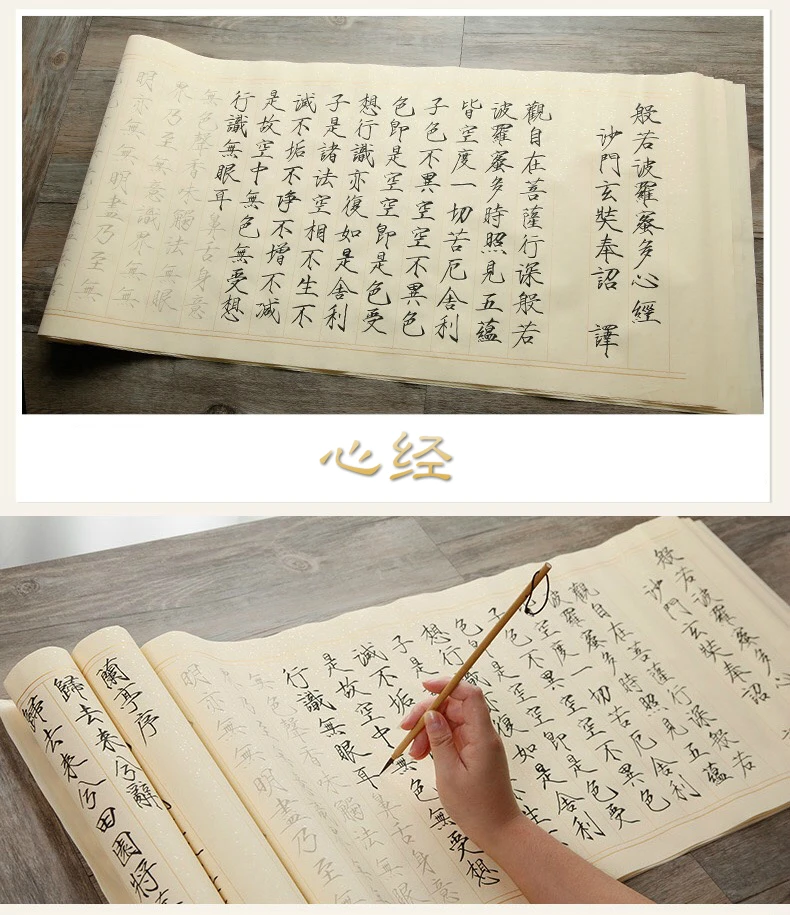 般若波羅蜜多心經
沙門玄奘奉詔 譯
觀自在菩薩行深般若
波羅蜜多時照見五蘊
皆空度一切苦厄舍利
子色不異空空不異色
色即是空空即是色受
想行識亦復如是舍利
子是諸法空相不生不
滅不垢不淨不增不減
是故空中無色無受想
行識無眼耳鼻舌身意
無色聲香味觸法無眼
界乃至無意識界無無
眀亦無無眀盡乃至無
心经
般若波羅蜜多心
沙門玄奘奉詔
觀自在菩薩行深般若
波羅蜜多時照見五蘊
空度一切苦厄舍利
子色不異空空不異色
色空即是色受
想行復如是舍利
子是生
滅不垢
是故空中無色無受想
行識無眼耳鼻舌身意
無色聲香味觸法無眼
眀亦無無眀盡乃至無
蘭亭序
歸去來兮辭
歸去來兮田園將